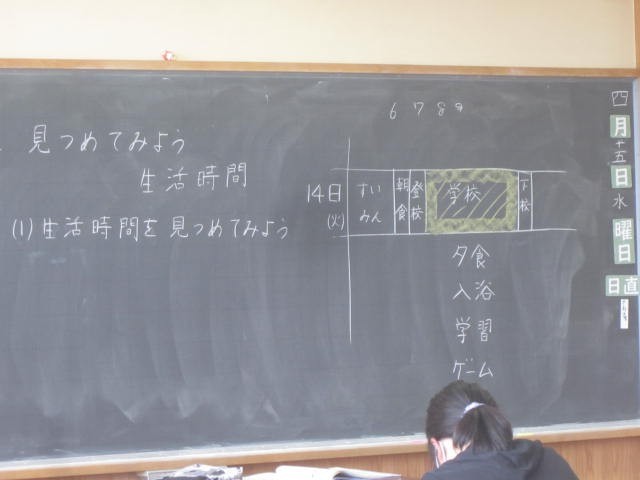 見つめてみよう
生活時間
(1)生活時間を見つめてみよう
6 7 8 9
14日
(火)
すいみん
朝食
登校
学校
下校
夕食
入浴
学習
ゲーム
四月十五日水曜日
日直